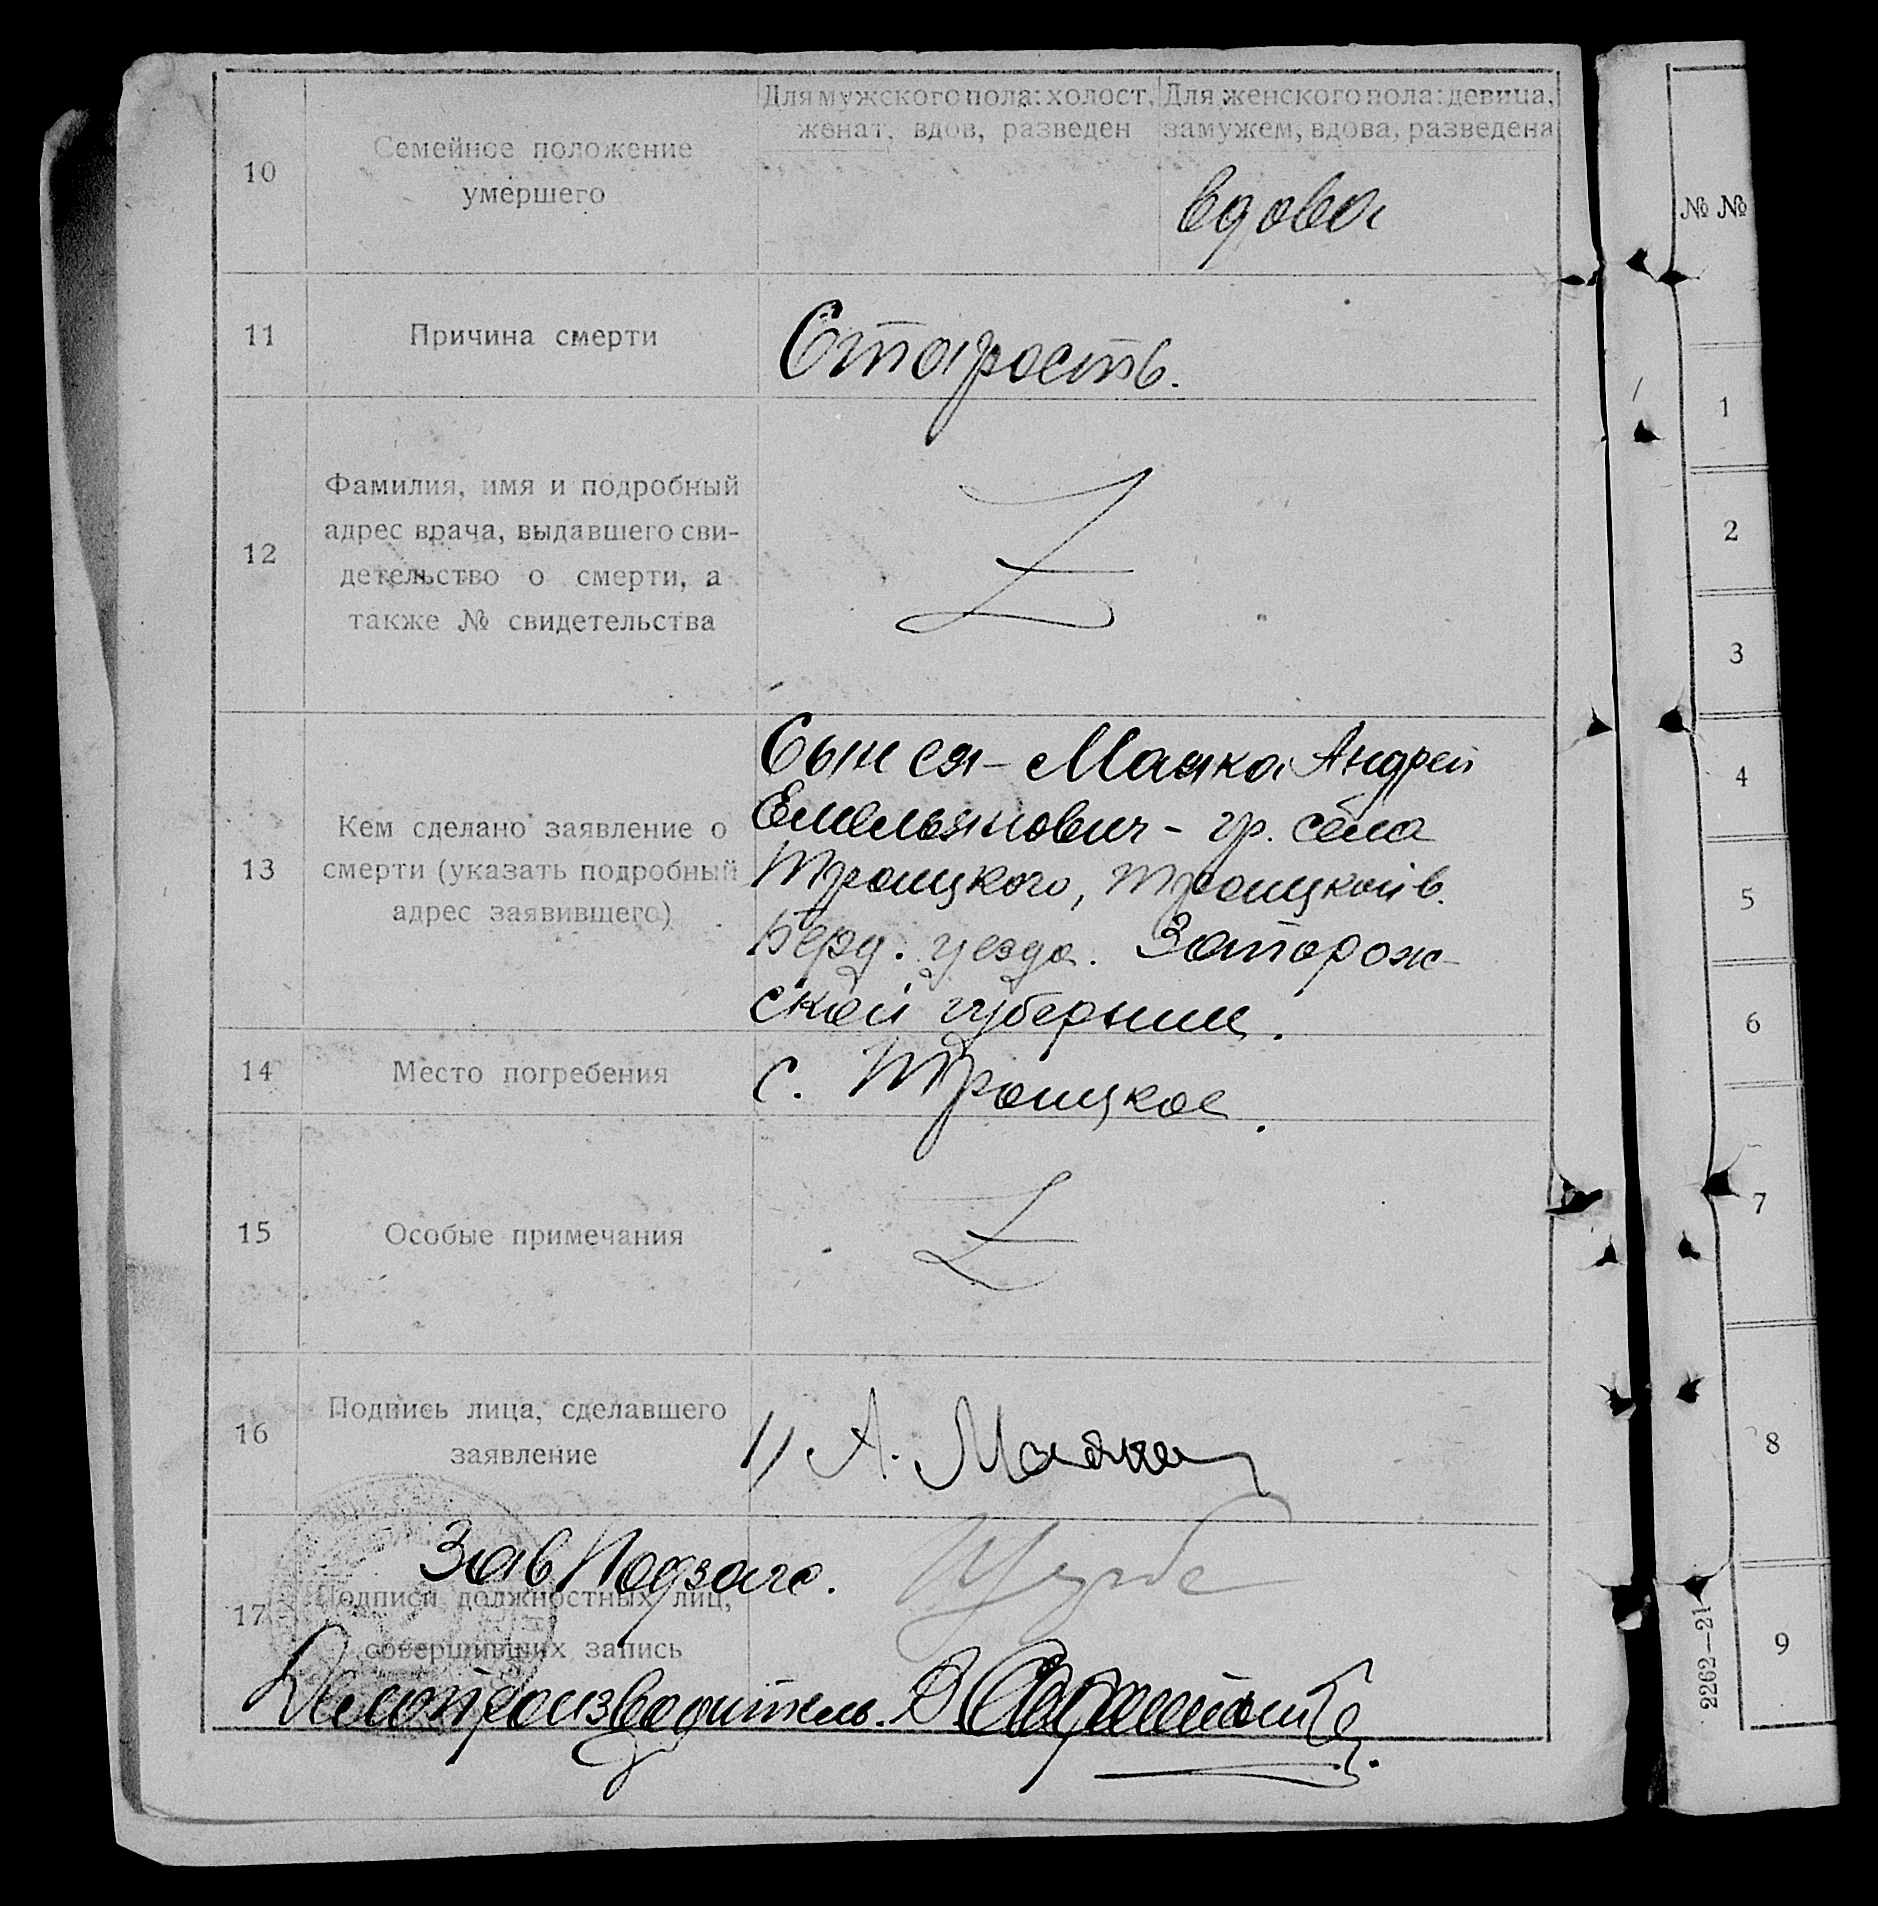 Для мужского пола: холост, женат, вдов, разведен
Для женского пола: девица, замужем, вдова, разведена
10
Семейное положение
умершего
вдова
11
Причина смерти
Старость.
12
Фамилия, имя и подробный
адрес врача, выдавшего сви-
детельство о смерти, а
также № свидетельства
13
Кем сделано заявление о
смерти (указать подробный
адрес заявившего)
Маяка Андрей
Емельянович - гр. села
Троицкого, Троицкой в.
Берд. уезда. Запорож-
ской губернии.
14
Место погребения
с. Троицкое.
15
Особые примечания
16
Подпись лица, сделавшего
заявление
1) А. Маяка
17
Подписи должностных лиц,
совершивших запись
Зав Подзагс.
Делопроизводитель.
№ №
1
2
3
4
5
6
7
8
9
2262—21